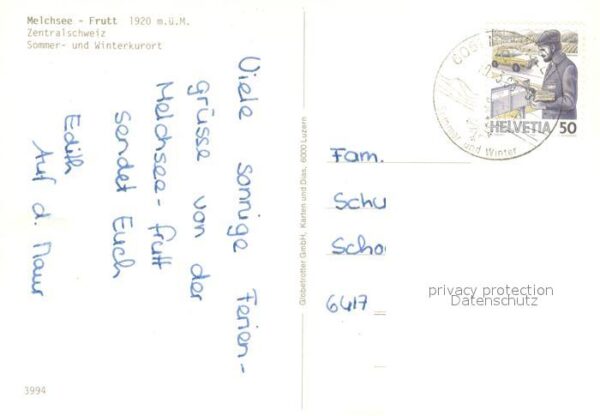 Melchsee - Frutt 1920 m.ü.M.
Zentralschweiz
Sommer- und Winterkurort
Viele sonnige Ferien-
grüsse von der
Melchsee-frutt
sendet Euch
Edith
Auf d. Maur
3994
Globetrotter GmbH, Karten und Dias, 6000 Luzern
HELVETIA 50
und Winter
Fam.
Schu
Scho
6417
privacy protection
Datenschutz